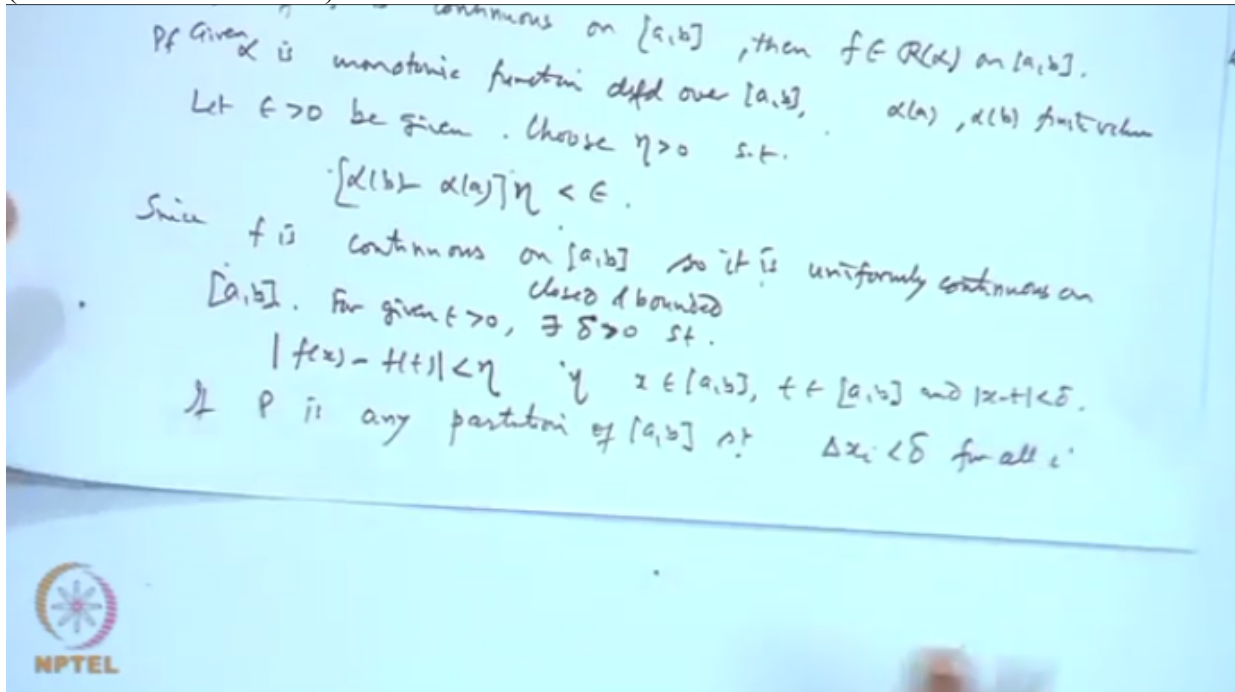 continuous on [a,b], then f ∈ R(α) on [a,b].
Pf Given α is monotonic function defd over [a,b], α(a), α(b) finite values
Let ϵ >0 be given. Choose η>0 s.t.
[α(b) - α(a)]η < ϵ.
Since f is continuous on [a,b] so it is uniformly continuous on
closed & bounded
[a,b]. For given ϵ >0, ∃ δ>0 st.
|f(x) - f(t)| < η if x ∈ [a,b], t ∈ [a,b] and |x-t|<δ.
If P is any partition of [a,b] st. Δxᵢ < δ for all i
NPTEL